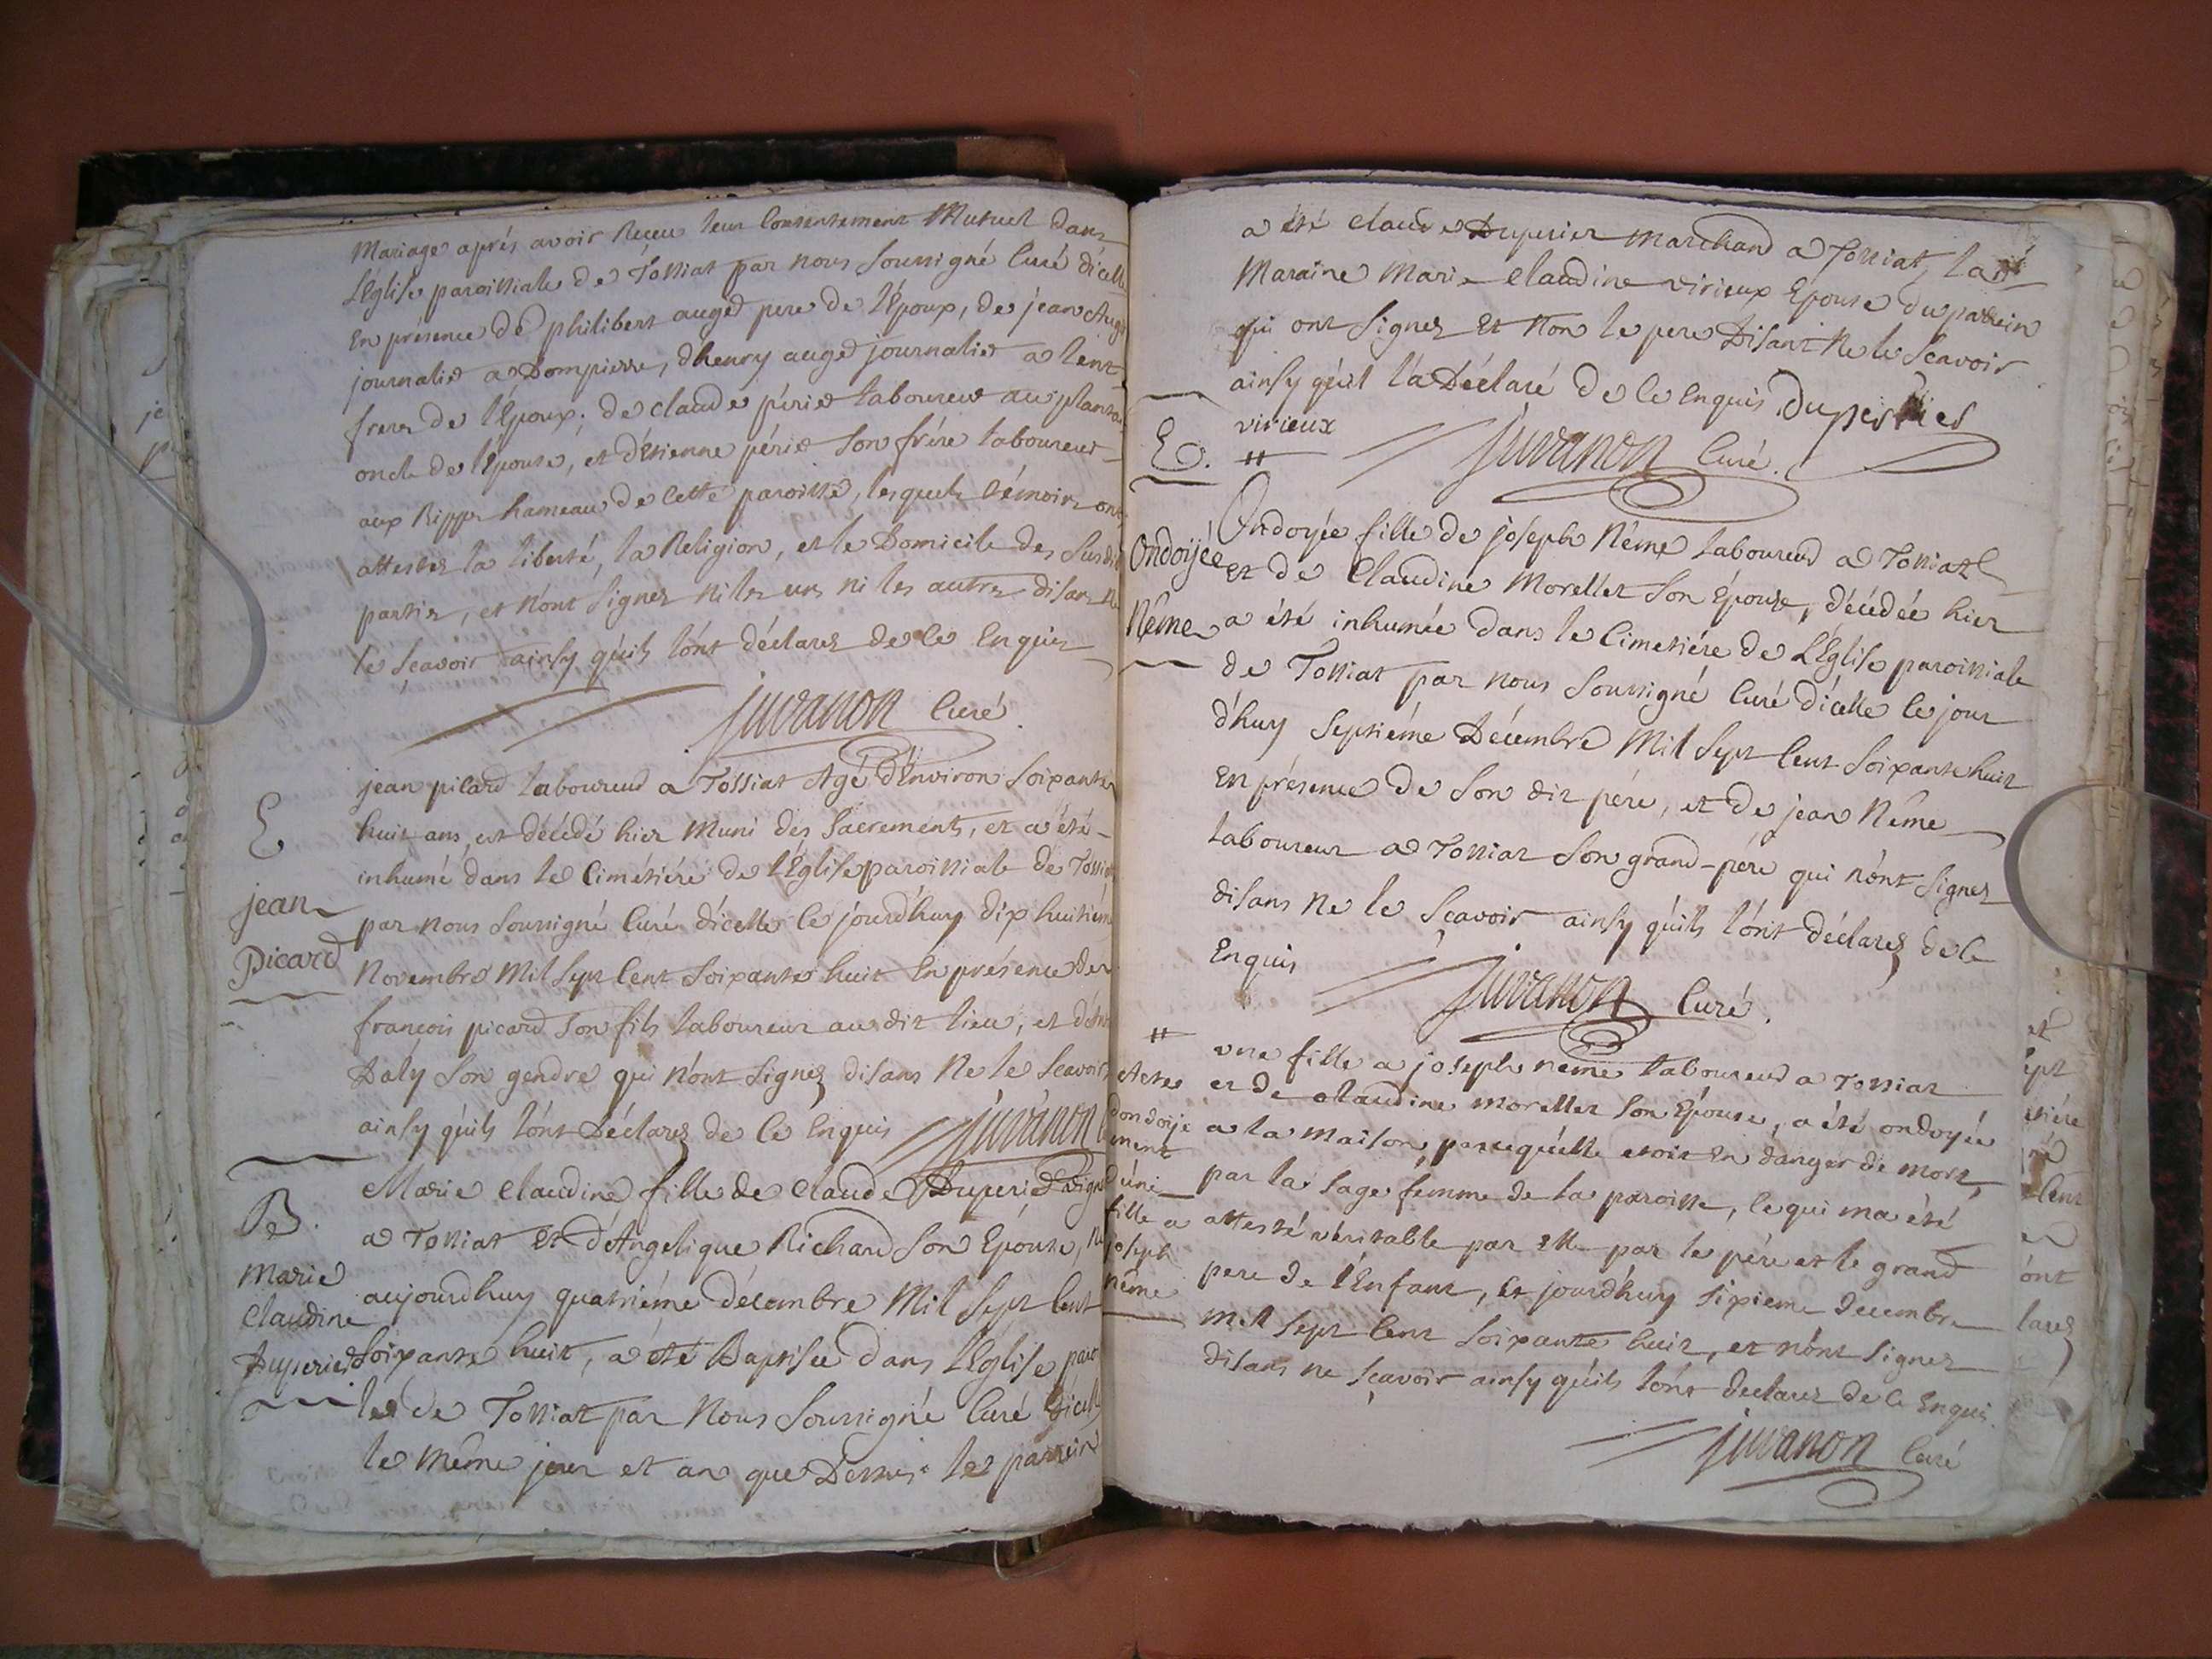 Mariage aprés avoir Receu leur Consentement Mutuel dans
L'Eglise paroissiale de Tossiat par nous soussigné Curé d'icelle
En présence de philibert auged pere de l'Epoux, de jean Auge
journalier a Dompierre, d'henry auged journalier a lent
freres de l'Epoux; de claude périer laboureur au plantay
oncle de l'Epouse, et d'Etienne périer son frére laboureur
aux Rippes hameau de Cette paroisse, lesquels témoins ont
attestez la liberté, la Religion, et le Domicile des susdit
parties, et n'ont signez ni les uns ni les autres disans ne
le sçavoir ainsy qu'ils l'ont déclarez de ce Enquis
juvanon Curé
E
jean
Picard
jean picard laboureur a Tossiat Agé d'Environ soixante
huit ans, est décédé hier Muni des Sacrements, et a été
inhumé dans le Cimétiére de l'Eglise paroissiale de Tossiat
par nous soussigné Curé d'icelle le jourd'huy dix huitiém
Novembre Mil sept Cent soixante huit En présence de
françois picard son fils laboureur au dit lieu, et
Daly son gendre qui n'ont signez disans Ne le Scavoir
ainsy qu'ils l'ont Déclarez de Ce Enquis juvanon
B.
Marie
Claudine
Duperier
Marie Claudine fille de Claude Duperier vign
a Tossiat Et d'Angelique Richard son Epouse, Né
aujourd'huy quatriéme décembre Mil sept Cent
soixante huit, a été Baptisée dans l'Eglise paroi
le de Tossiat par Nous soussigné Curé d'icelle
le même jour et an que Dessus. le parrein
a été Claude Duperier marchand a Tossiat, la
Maraine Marie Claudine virieux Epouse du parrein
qui ont signez Et Non le pere Disant Ne le Scavoir
ainsy qu'il l'a Déclaré de Ce Enquis Duperier
virieux
juvanon Curé.
E.
Ondoyée
Néme
Ondoyée fille de joseph Néme laboureur a Tossiat
Et de Claudine Morellet son Epouse, décédée hier
a été inhumée dans le Cimetiére de L'Eglise paroissiale
de Tossiat par nous soussigné Curé d'icelle le jour
d'huy septiéme Décembre Mil sept Cent soixante huit
En présence de son dit pére, et de jean Néme
laboureur a Tossiat son grand-pére qui n'ont signez
disans Ne le Scavoir ainsy qu'ils l'ont déclarez de Ce
Enquis juvanon Curé.
Acte
d'ondoije
ment
d'une
fille a
joseph
néme
une fille a joseph neme laboureur a Tossiat
et de claudine morellet son Epouse, a été ondoyée
a la maison, parcequ'elle etoit En danger de mort,
par la sage femme de la paroisse, ce qui m'a été
attesté véritable par Elle par le pére et le grand
pere de l'Enfant, Ce jourd'huy sixieme decembre
mil sept Cent soixante huit, et n'ont signez
disans ne sçavoir ainsy qu'ils l'ont declarez de Ce Enquis.
juvanon Curé